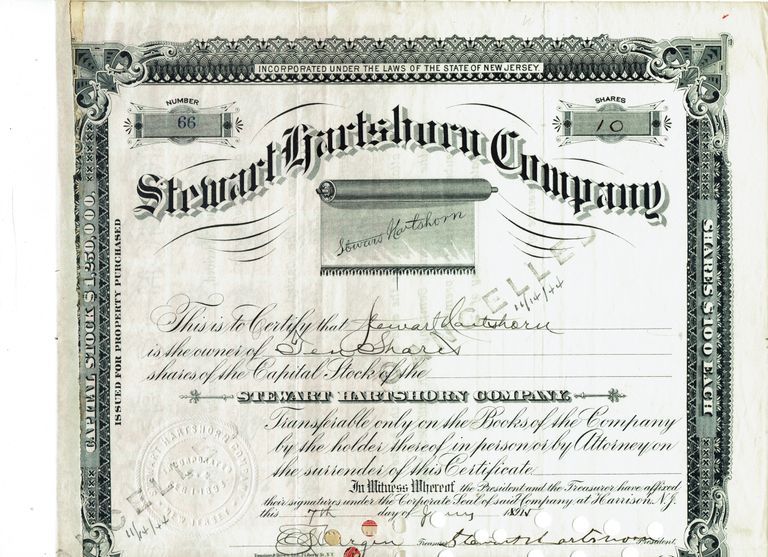 INCORPORATED UNDER THE LAWS OF THE STATE OF NEW JERSEY
NUMBER
66
SHARES
10
Stewart Hartshorn Company
Stewart Hartshorn
CAPITAL STOCK $1,250,000,
ISSUED FOR PROPERTY PURCHASED
SHARES $100 EACH
CANCELLED
11/14/44
This is to Certify that Stewart Hartshorn
is the owner of Ten Shares
shares of the Capital Stock of the
STEWART HARTSHORN COMPANY.
Transferable only on the Books of the Company
by the holder thereof in person or by Attorney on
the surrender of this Certificate
In Witness Whereof the President and the Treasurer have affixed
their signatures under the Corporate Seal of said Company at Harrison, N.J.
this 7th day of
Treasurer Stewart Hartshorn President.
STEWART HARTSHORN COMPANY
INCORPORATED
NEW JERSEY
CANCELLED
11/14/44